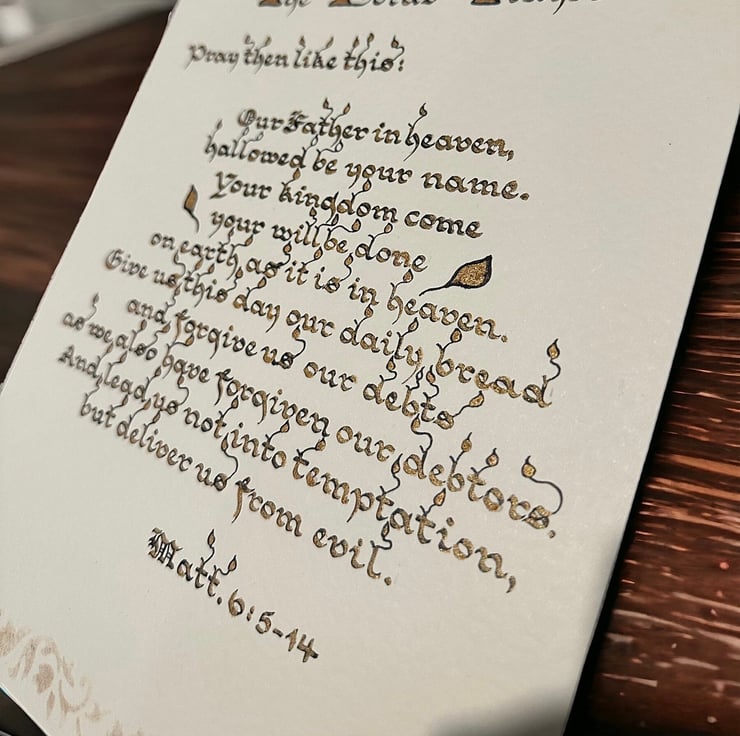 The Lords Prayer
Pray then like this:
Our Father in heaven,
hallowed be your name.
Your kingdom come
your will be done
on earth, as it is in heaven.
Give us this day our daily bread
and forgive us our debts
as we also have forgiven our debtors.
And lead us not into temptation,
but deliver us from evil.
Matt. 6:5-14